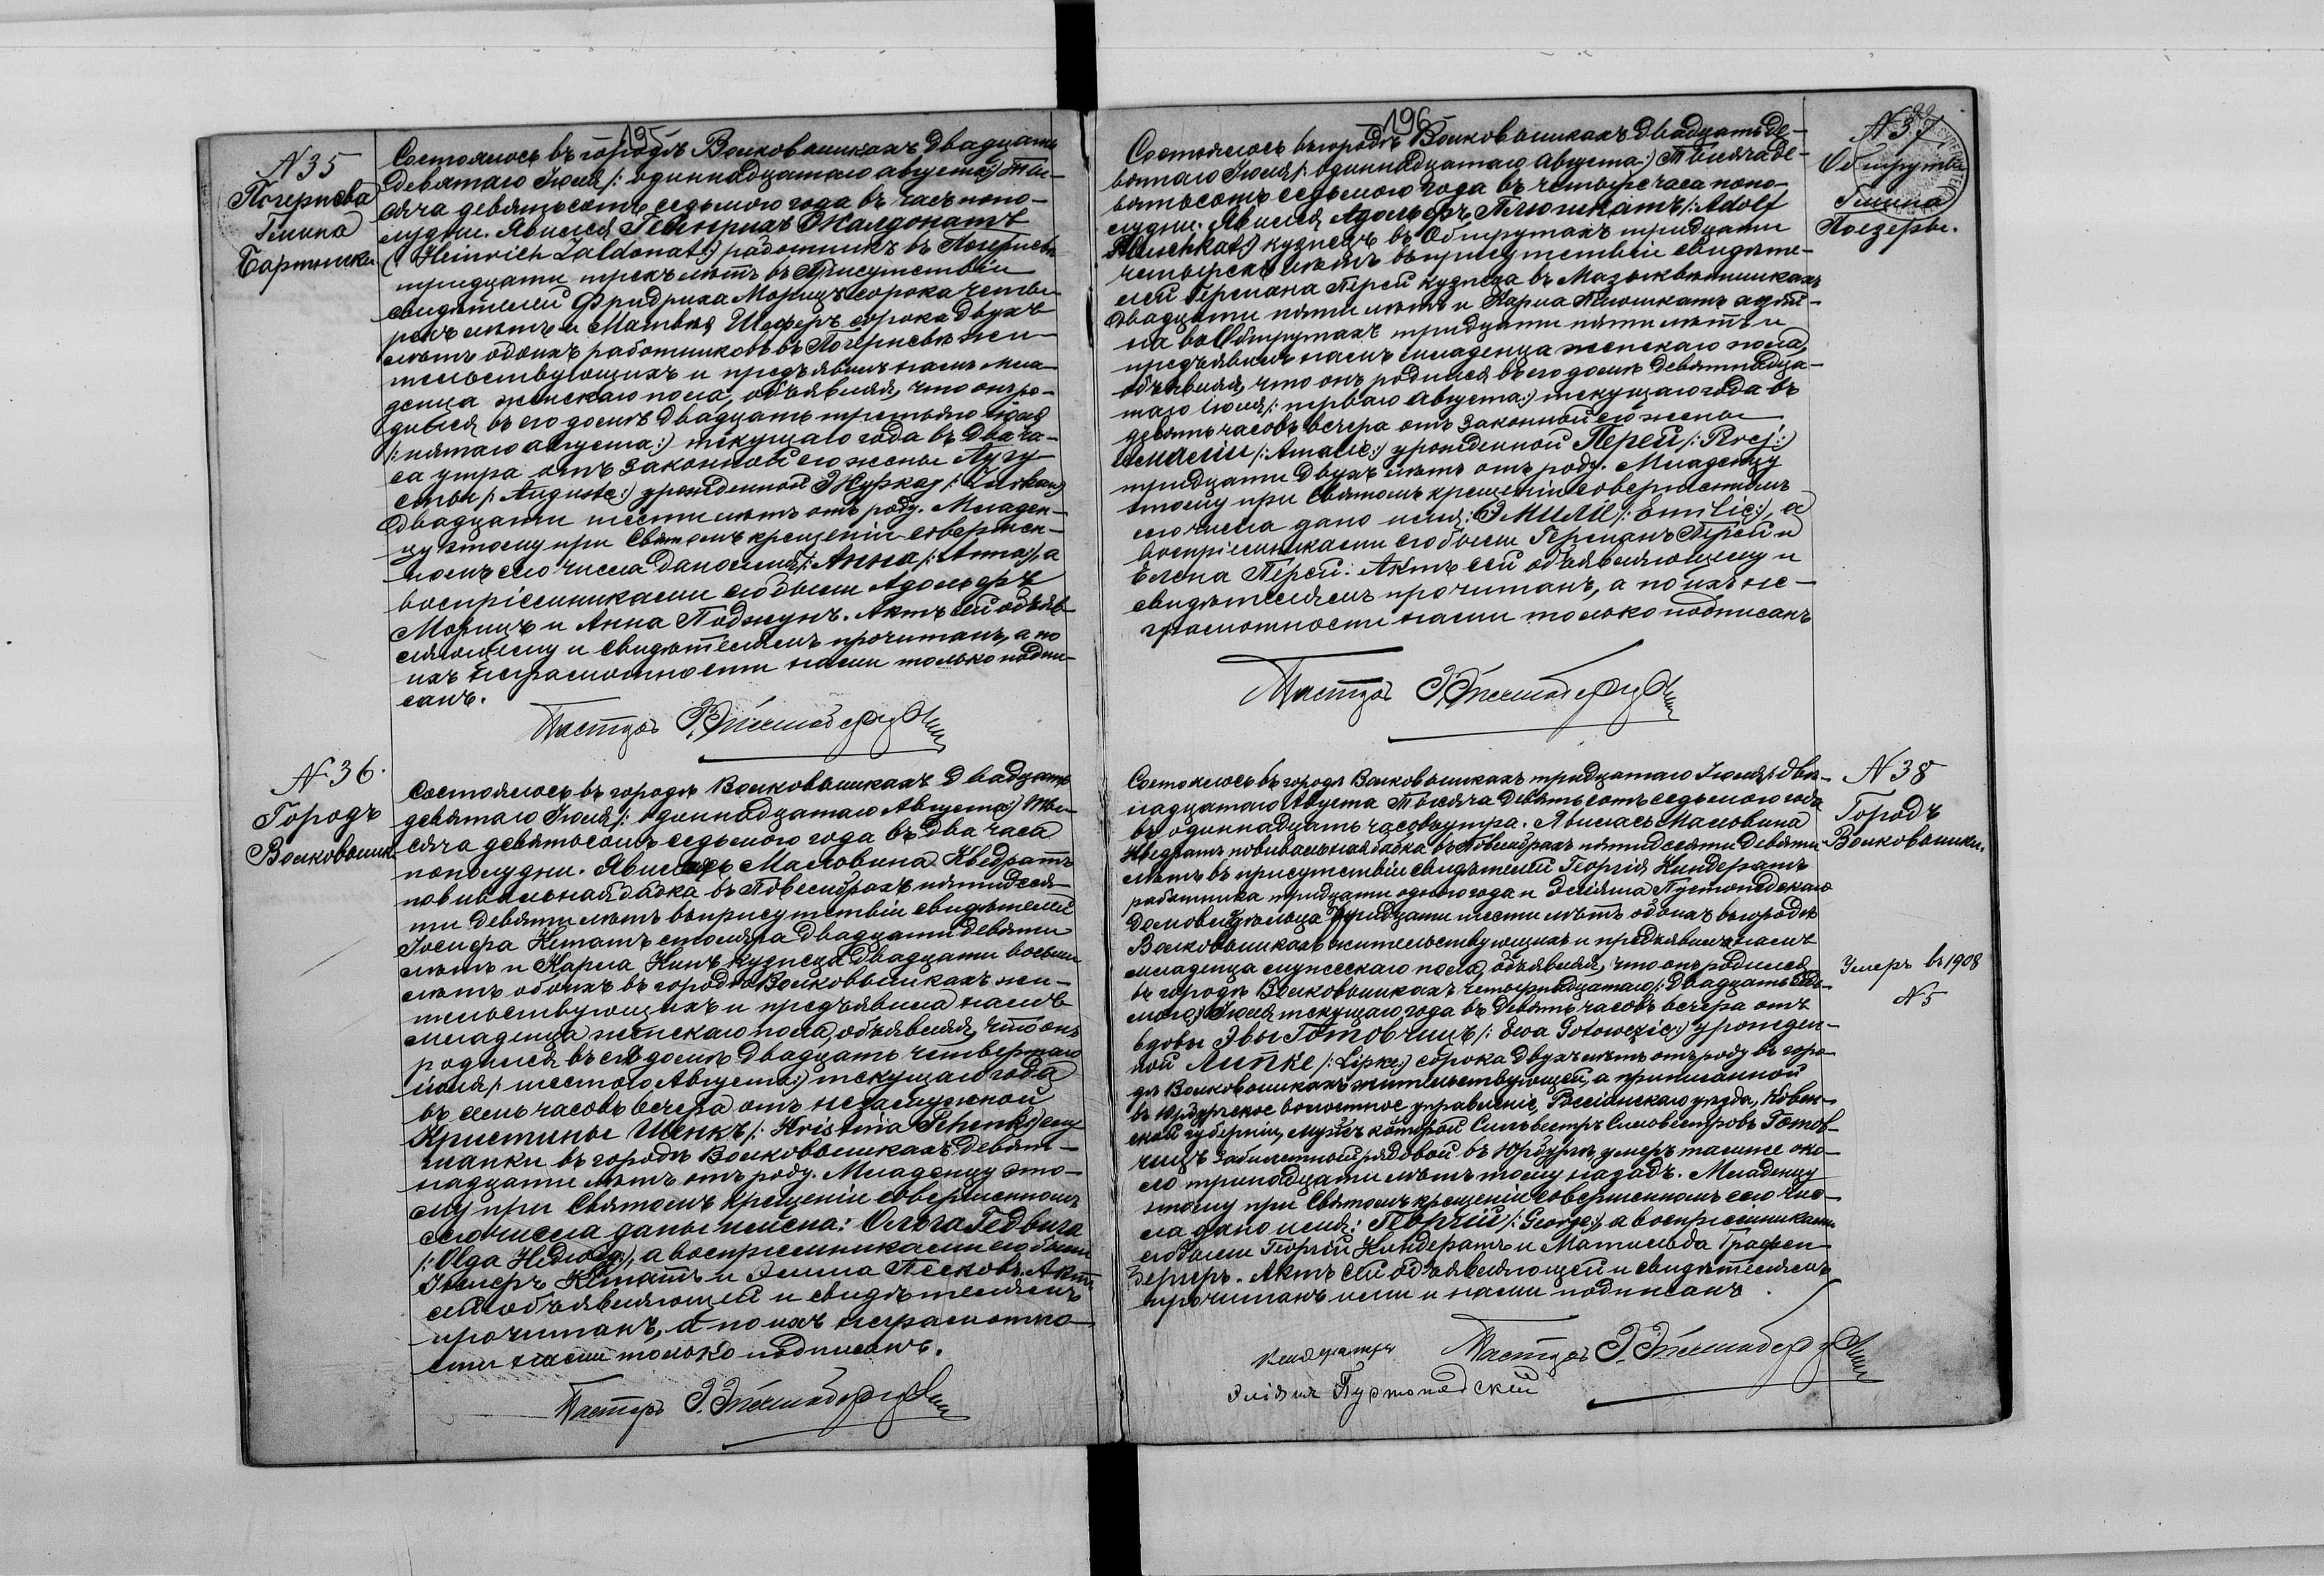 195
N 35
Погернева
Гмина
Бартники
Состоялось въ городѣ Волковышкахъ двадцать
девятаго Іюля /: одиннадцатаго августа:/ ты-
сяча девятьсотъ седьмого года въ часъ попо-
лудни. Явился Гейнрихъ Жалдонатъ
(: Heinrich Zaldonat:) работникъ въ Погерневѣ
тридцати трехъ лѣтъ въ присутствіи
свидѣтелей Фридриха Морицъ сорока четы-
рехъ лѣтъ и Матвѣя Шеферъ сорока двухъ
лѣтъ обоихъ работниковъ въ Погерневѣ жи-
тельствующихъ и предъявилъ намъ мла-
денца женскаго пола, объявляя, что онъ ро-
дился въ его домѣ двадцать третьяго іюля
/: пятаго августа:/ текущаго года въ два ча-
са утра отъ законной его жены Аугу-
сты /: Auguste:/ урожденной
двадцати шести лѣтъ отъ роду. Младен-
цу этому при Святомъ крещеніи совершен-
номъ сего числа дано имя: Анна /: Anna:/, а
воспріемниками его были Адольфъ
Морицъ и Анна Поджунъ. Актъ сей объяв-
ляющему и свидѣтелямъ прочитанъ, а по
ихъ неграмотности нами только подпи-
санъ.
Пасторъ
N 36.
Городъ
Волковышки
Состоялось въ городѣ Волковышкахъ двадцать
девятаго Іюля /: одиннадцатаго Августа:/ ты-
сяча девятьсотъ седьмого года въ два часа
пополудни. Явилась Мальвина Кведратъ
повивальная бабка въ Повембрахъ пятидеся-
ти девяти лѣтъ въ присутствіи свидѣтелей
Іосифа Кетатъ столяра двадцати девяти
лѣтъ и Карла Кинъ кузнеца двадцати восьми
лѣтъ обоихъ въ городѣ Волковышкахъ жи-
тельствующихъ и предъявила намъ
младенца женскаго пола, объявляя, что онъ
родился въ ея домѣ двадцать четвертаго
іюля /: шестого Августа:/ текущаго года
въ семь часовъ вечера отъ незамужной
Кристины Шенкъ /: Kristina Schenk:/ слу-
жанки въ городѣ Волковышкахъ девят-
надцати лѣтъ отъ роду. Младенцу это-
му при Святомъ крещеніи совершенномъ
сего числа даны имена: Ольга Гедвига
/: Olga Hedwig:/, а воспріемниками его были
Іосифъ Кетатъ и Эмма Песковъ. Актъ
сей объявляющей и свидѣтелямъ
прочитанъ, а по ихъ неграмотно-
сти нами только подписанъ.
Пасторъ
196
N 37
Обшруты
Гмина
Поезеры.
Состоялось въ городѣ Волковышкахъ двадцать де-
вятаго Іюля /: одиннадцатаго Августа:/ тысяча де-
вятьсотъ седьмого года въ четыре часа попо-
лудни. Явился Адольфъ Плюшкатъ /: Adolf
Pluschkat:/ кузнецъ въ Обшрутахъ тридцати
четырехъ лѣтъ въ присутствіи свидѣте-
лей Германа Перей кузнеца въ
двадцати пяти лѣтъ и Карла Плюшкатъ
въ Обшрутахъ тридцати пяти лѣтъ и
предъявилъ намъ младенца женскаго пола,
объявляя, что онъ родился въ его домѣ девятнадца-
таго іюля /: перваго Августа:/ текущаго года въ
девять часовъ вечера отъ законной его жены
Амаліи /: Amalie:/ урожденной Перей /: Perej:/
тридцати двухъ лѣтъ отъ роду. Младенцу
этому при Святомъ крещеніи совершенномъ
сего числа дано имя: Эмилія /: Emilie:/, а
воспріемниками его были Германъ Перей и
Елена Перей. Актъ сей объявляющему и
свидѣтелямъ прочитанъ, а по ихъ не-
грамотности нами только подписанъ
Пасторъ
N 38
Городъ
Волковышки.
Умеръ въ 1908
N 5
Состоялось въ городѣ Волковышкахъ тридцатаго Іюля /: двѣ-
надцатаго Августа тысяча девятьсотъ седьмого года
въ одиннадцать часовъ утра. Явилась Мальвина
Кведратъ повивальная бабка въ Повембрахъ пятидесяти девяти
лѣтъ въ присутствіи свидѣтелей Георгія Киндератъ
работника тридцати одного года и Эліяша Пустопедскаго
домовладѣльца тридцати шести лѣтъ обоихъ въ городѣ
Волковышкахъ жительствующихъ и предъявила намъ
младенца мужескаго пола, объявляя, что онъ родился
въ городѣ Волковышкахъ четырнадцатаго /: двадцать седь-
мого:/ Іюля текущаго года въ девять часовъ вечера отъ
вдовы Эвы Готовчицъ /: Ewa Gotowczic:/ урожден-
ной Липке /: Lipke:/ сорока двухъ лѣтъ отъ роду въ горо-
дѣ Волковышкахъ жительствующей, а приписанной
въ Юрбургское волостное управленіе, Россіенскаго уѣзда, Ковен-
ской губерніи, мужъ которой Сильвестръ Сильвестровъ Готов-
чицъ забилетный рядовой въ Юрбургѣ, умеръ тамже око-
ло тринадцати лѣтъ тому назадъ. Младенцу
этому при Святомъ крещеніи совершенномъ сего чис-
ла дано имя: Георгій /: George:/, а воспріемниками
его были Георгій Киндератъ и Матильда Графен-
бергеръ. Актъ сей объявляющей и свидѣтелямъ
прочитанъ ими и нами подписанъ.
Пасторъ
Эліяш Пустопедскій